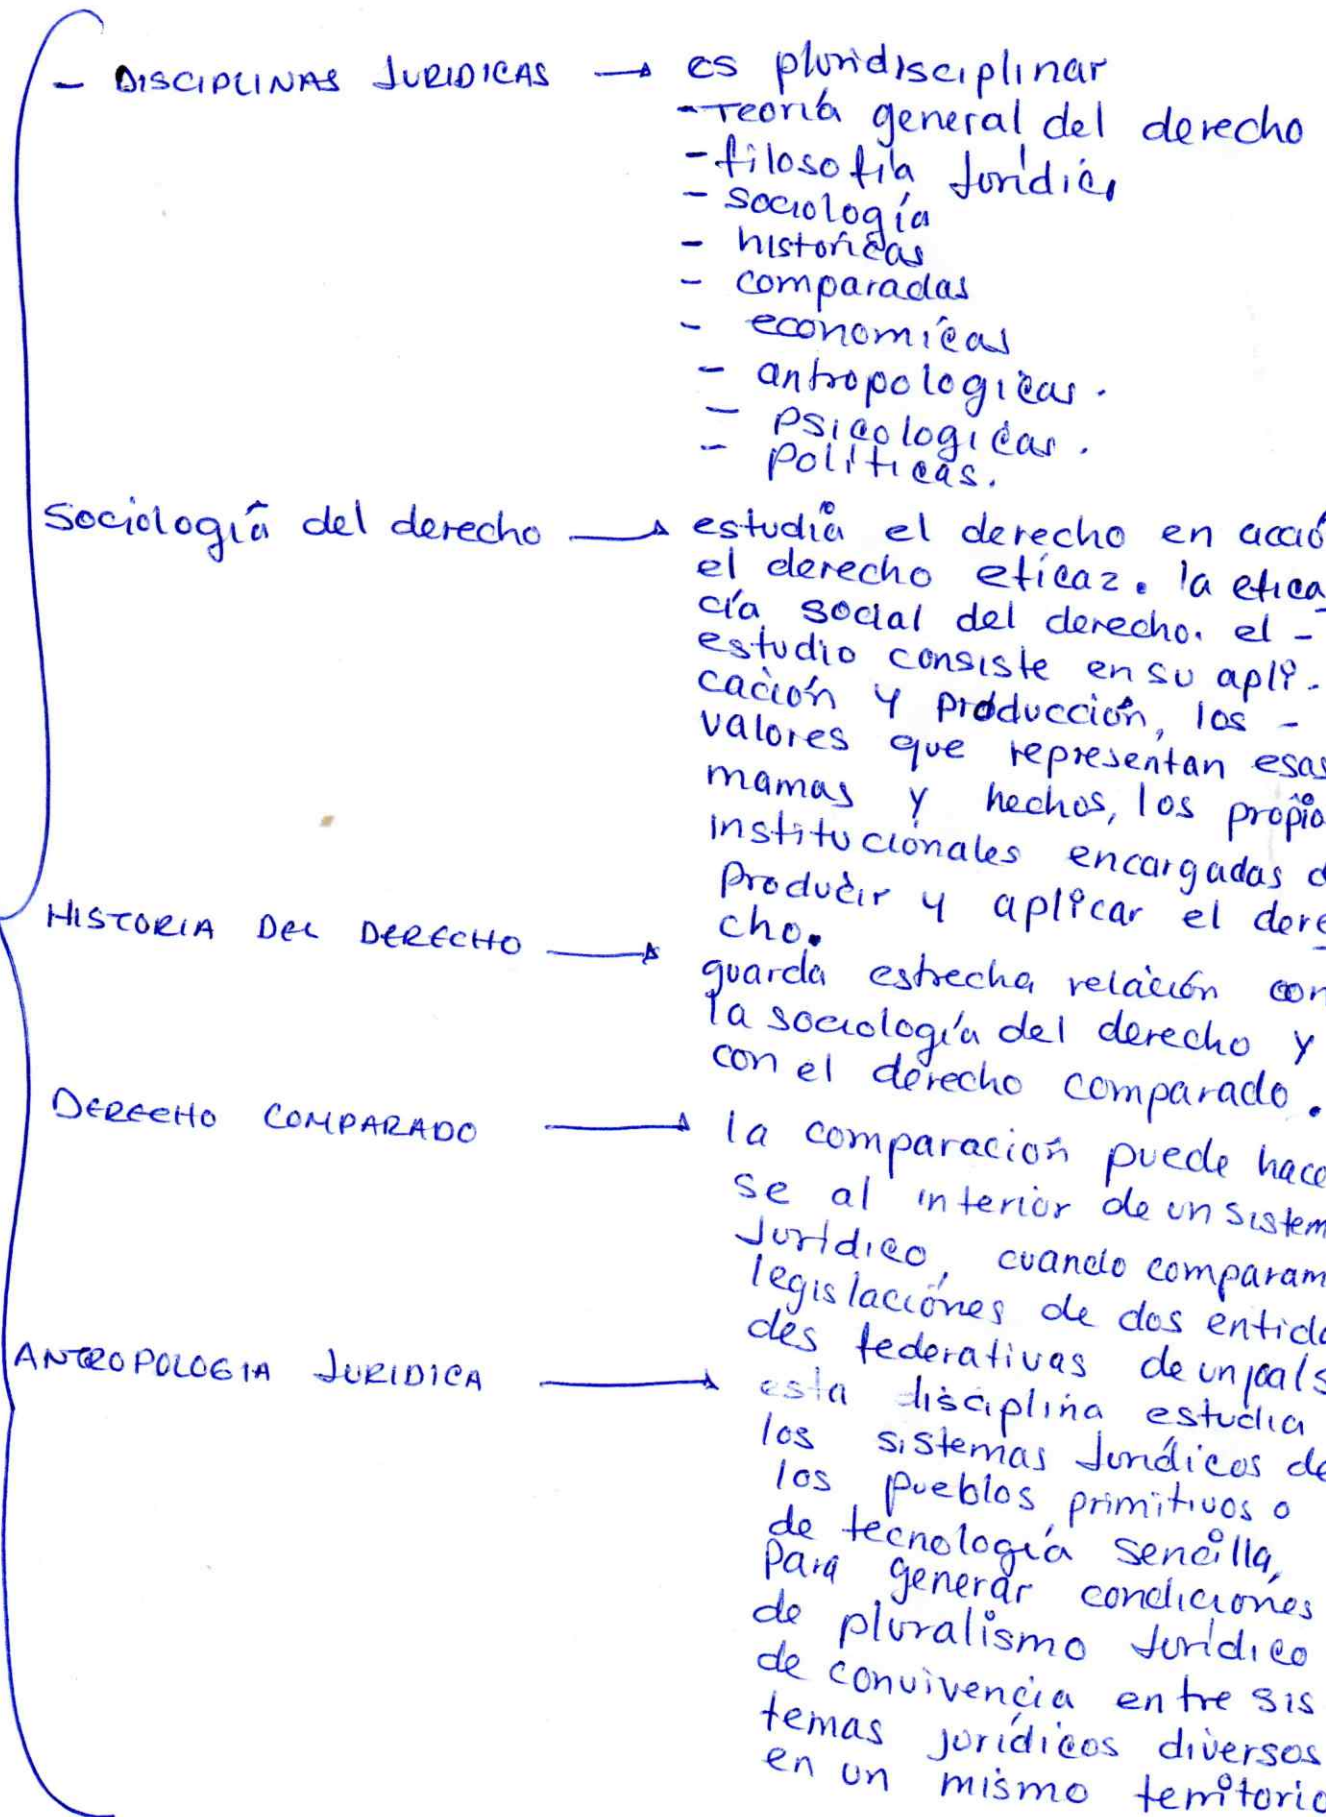 - DISCIPLINAS JURIDICAS → es pluridisciplinar
- Teoría general del derecho
- filosofía Jurídica
- sociología
- históricas
- comparadas
- económicas
- antropologicas.
- psicologicas.
- políticas.
Sociología del derecho → estudia el derecho en acció
el derecho eficaz. la efica
cía social del derecho. el -
estudio consiste en su apli-
cación y producción, los -
valores que representan esas
mamas y hechos, los propio
institucionales encargadas d
producir y aplicar el dere
cho.
HISTORIA DEL DERECHO →
guarda estrecha relación con
la sociología del derecho y
con el derecho comparado.
DERECHO COMPARADO → la comparación puede hace
se al interior de un sistem
Jurídico, cuando comparam
legislaciones de dos entida
des federativas de un país
ANTROPOLOGIA JURIDICA → esta disciplina estudia
los sistemas Jurídicos de
los pueblos primitivos o
de tecnología sencilla,
Para generar condiciones
de pluralismo Jurídico
de convivencia entre sis
temas jurídicos diversos
en un mismo territorio